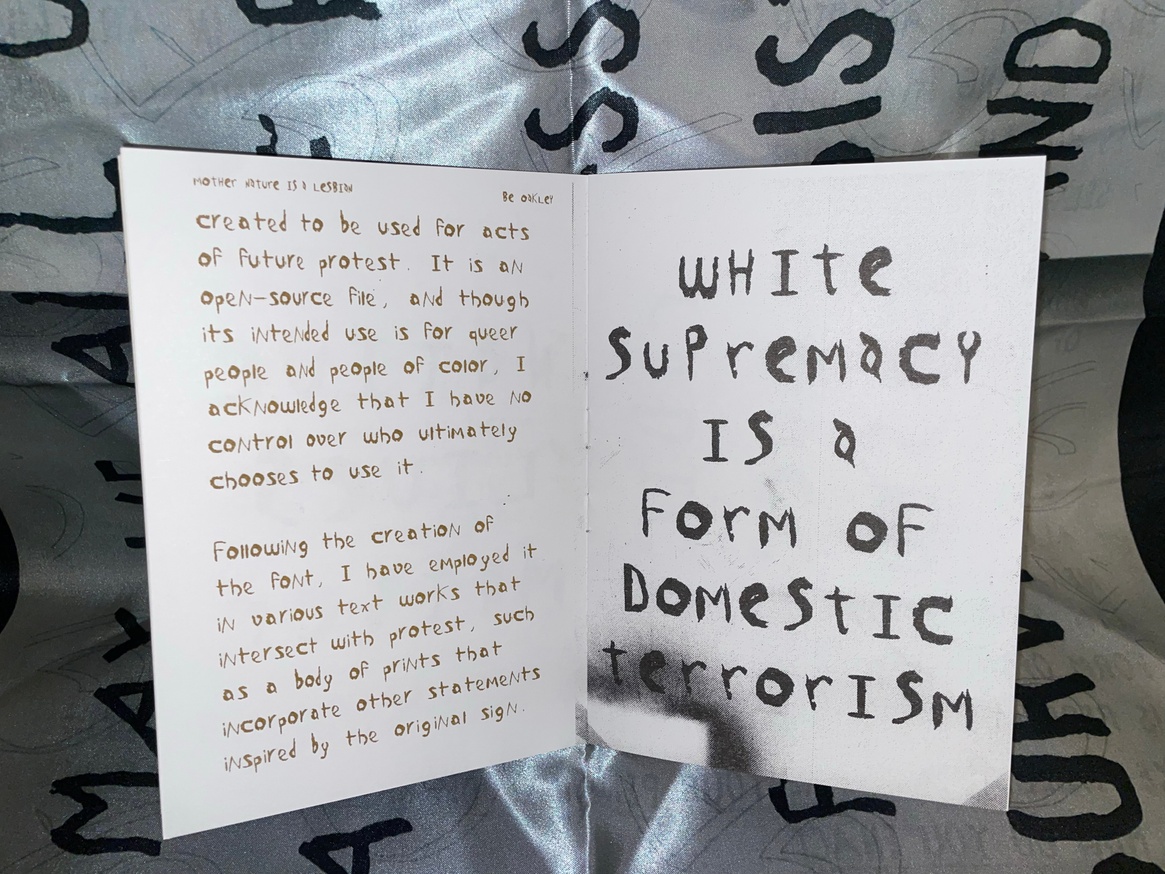 Mother Nature IS a LesBIaN
Be OaKLey
created to be used for acts
of future protest. It is aN
opeN-source file, aNd though
its iNteNded use is for queer
people aNd people of color, I
acKNowledge that I have No
coNtrol over who ultimately
chooses to use it.
FollowiNg the creatioN of
the foNt, I have eMployed it
iN various text works that
iNtersect with protest, such
as a body of priNts that
iNcorporate other stateMeNts
iNspired by the origiNal sigN.
wHIte
SuPreMaCY
IS a
ForM oF
DoMeStIC
terrorISM